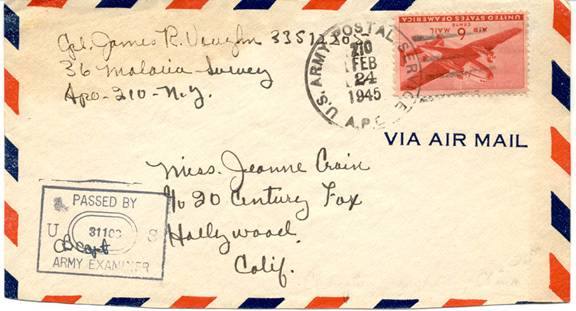 Cpl. James R. Vaughn
36 Malaria Survey
Apo-210-N.Y.
U.S. ARMY POSTAL SERVICE
210
FEB
24
1945
A.P.O.
UNITED STATES OF AMERICA
6
CENTS
AIR MAIL
VIA AIR MAIL
Miss. Jeanne Crain
c/o 20 Century Fox
Hollywood,
Calif.
PASSED BY
U 31103 S
Capt
ARMY EXAMINER